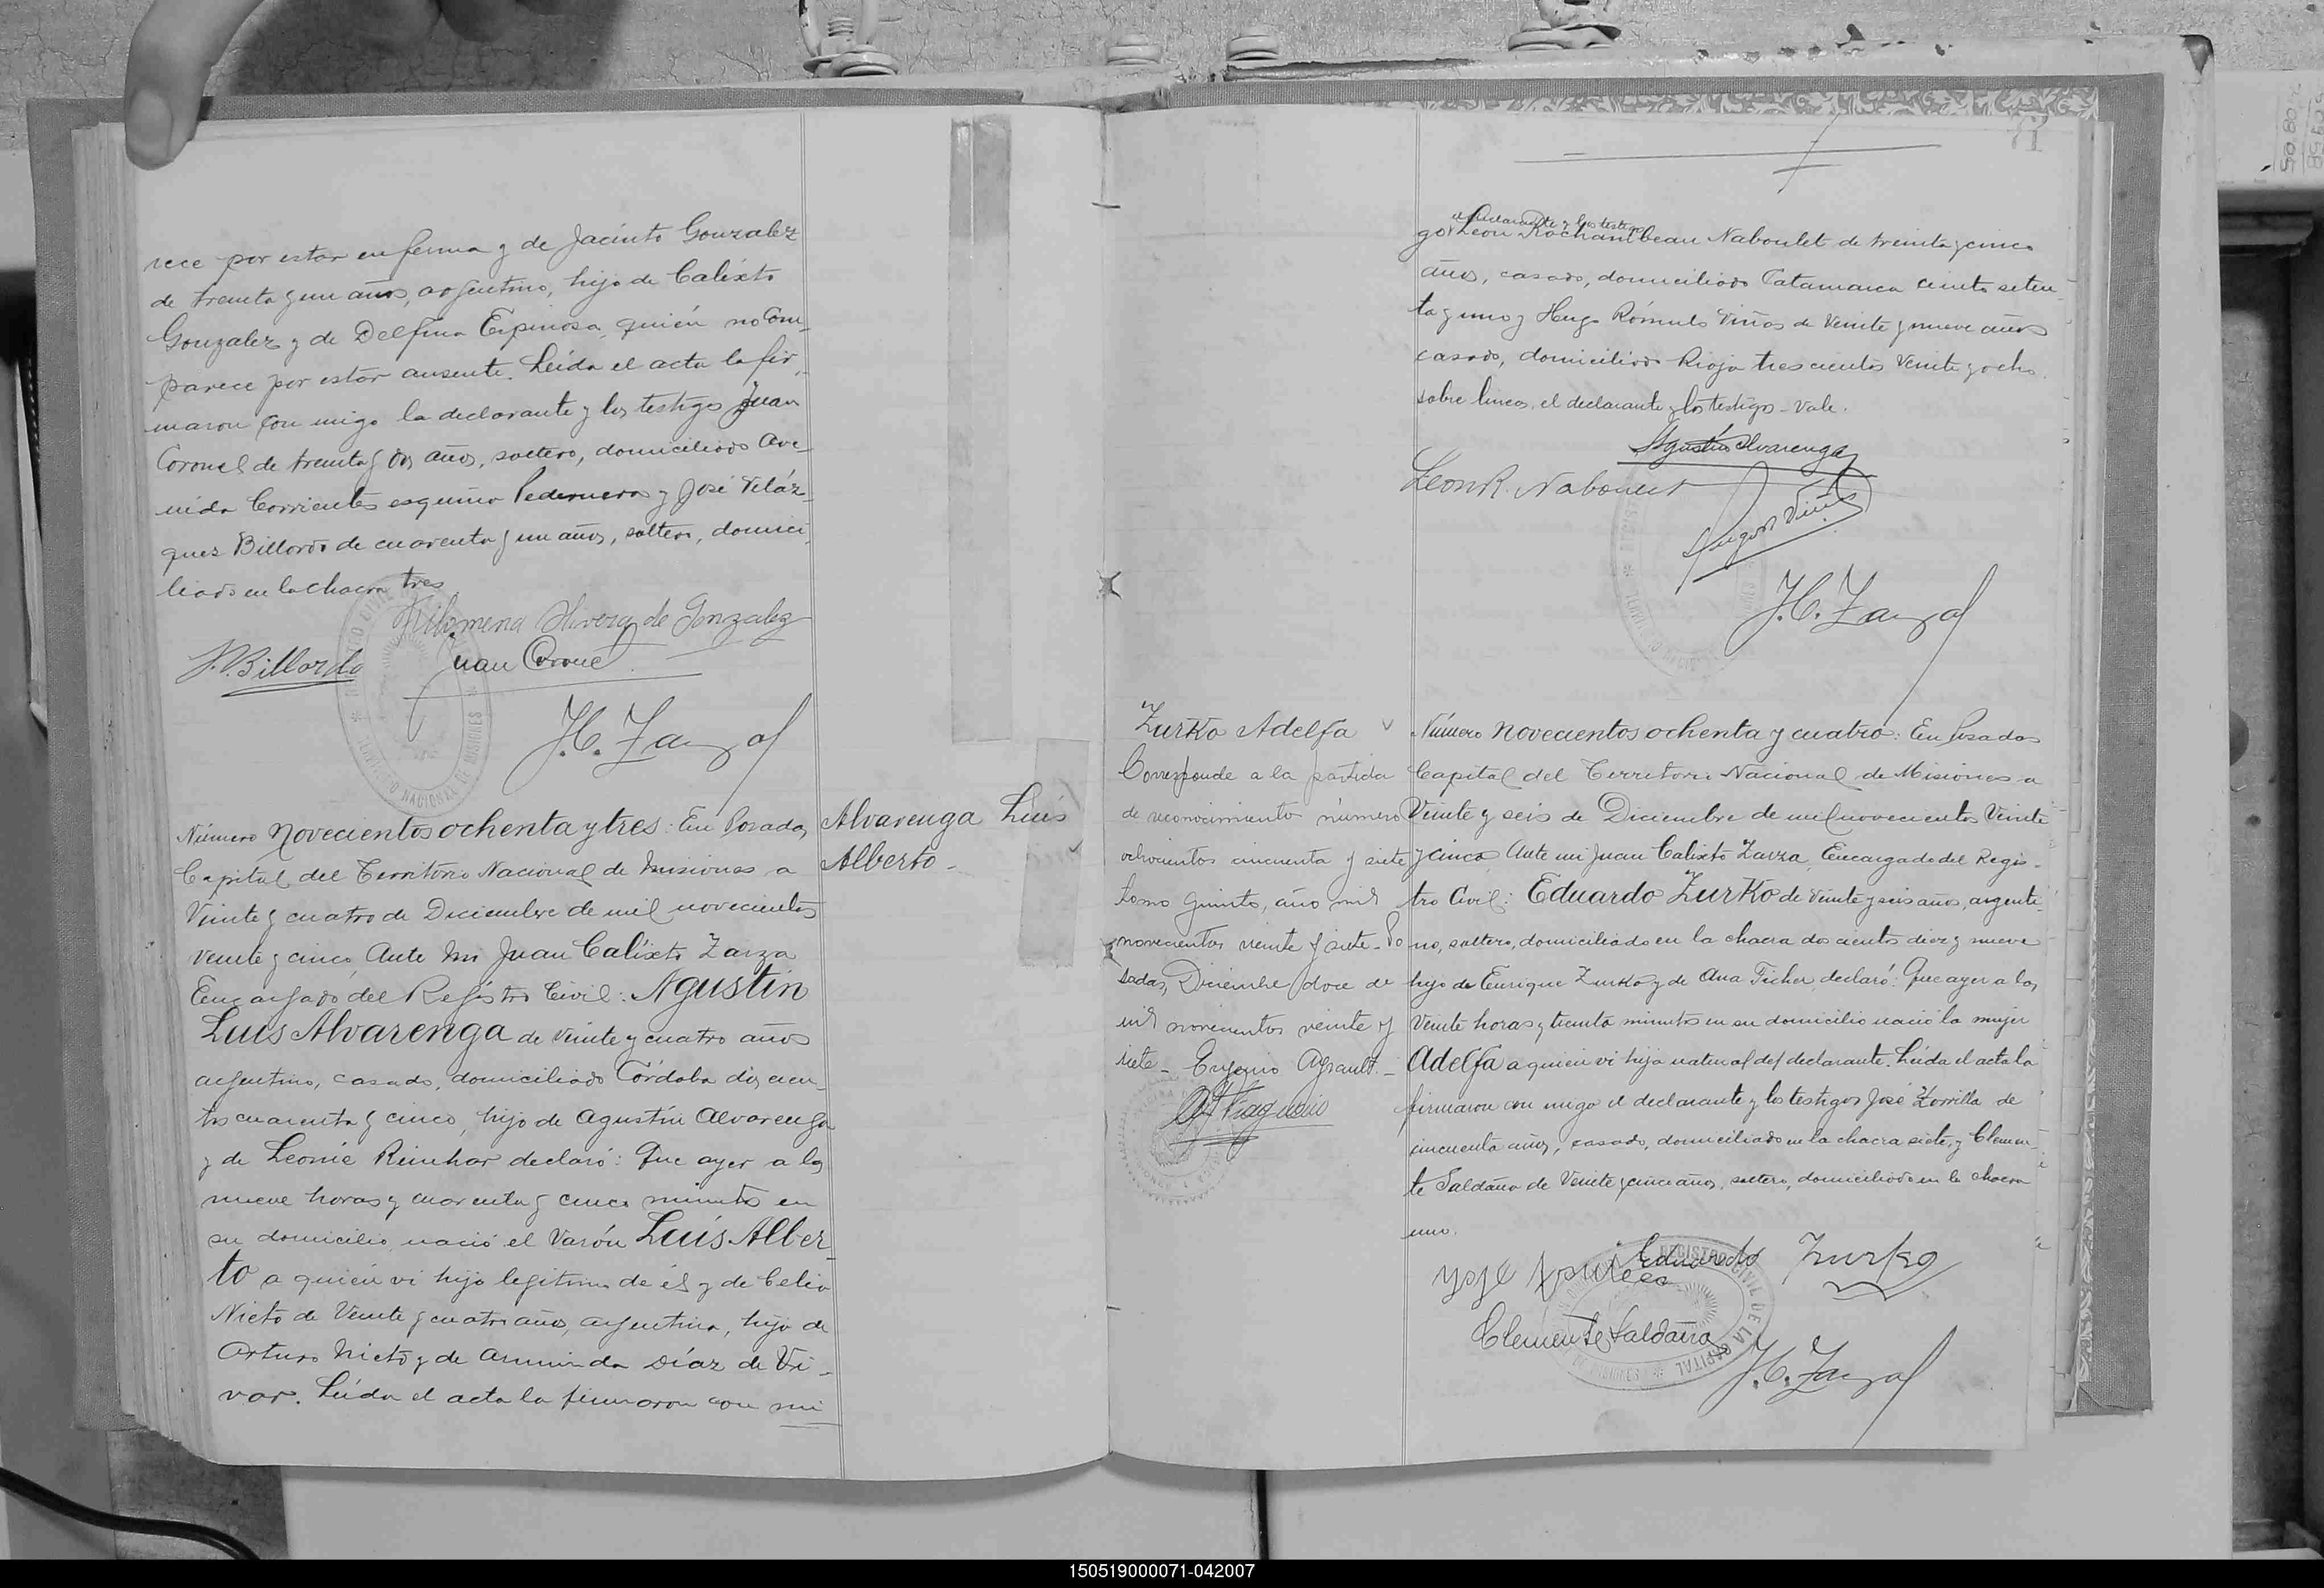 rece por estar enferma y de Jacinto Gonzalez
de treinta y un años, argentino, hijo de Calixto
Gonzalez y de Delfina Espinosa, quién no Com-
parece por estar ausente. Leída el acta la fir-
maron con migo la declarante y los testigos Juan
Coronel de treinta y dos años, soltero, domiciliado Ave-
nida Corrientes esquina Pedernera y José Veláz-
quez Billordo de cuarenta y un años, soltero, domici-
liado en la chacra tres
Filomena Olivera de Gonzalez
J.V. Billordo
Juan Coronel
J.C. Zarza
Número novecientos ochenta y tres: En Posadas,
Capital del Territorio Nacional de Misiones a
Veinte y cuatro de Diciembre de mil novecientos
veinte y cinco, Ante Mi Juan Calixto Zarza
Encargado del Registro Civil: Agustín
Luis Alvarenga de veinte y cuatro años
argentino, casado, domiciliado Córdoba dos cien-
tos cuarenta y cinco, hijo de Agustín Alvarenga
y de Leonie Reinhar declaró: Que ayer a las
nueve horas y cuarenta y cinco minutos en
su domicilio nació el Varón Luis Alber-
to a quien vi hijo legítimo de él y de Celia
Nieto de Veinte y cuatro años, argentina, hija de
Arturo Nieto y de Arminda Díaz de Vi-
var. Leída el acta la firmaron con mi
Alvarenga Luis
Alberto-
el declarante y los testigos
go León Rochambeau Naboulet de treinta y cinco
años, casado, domiciliado Catamarca ciento seten-
ta y uno y Hugo Rómulo Viñas de Veinte y nueve años
casado, domiciliado Rioja trescientos Veinte y ocho.
sobre lineas, el declarante y los testigos - Vale.
Agustín Alvarenga
Leon R. Naboulet
Hugo R Viñas
J.C. Zarza
Zurko Adelfa
Corresponde a la partida
de reconocimiento número
ochocientos cincuenta y siete
tomo quinto, año mil
novecientos veinte y siete - Po
sadas, Diciembre doce de
mil novecientos veinte y
siete -
Número novecientos ochenta y cuatro: En Posadas
Capital del Territorio Nacional de Misiones a
Veinte y seis de Diciembre de mil novecientos Veinte
y cinco, Ante mi Juan Calixto Zarza, Encargado del Regis-
tro Civil: Eduardo Zurko de veinte y seis años, argenti-
no, soltero, domiciliado en la chacra dos cientos diez y nueve
hijo de Enrique Zurko y de Ana Ficher, declaró: Que ayer a las
Veinte horas y treinta minutos en su domicilio nació la mujer
Adelfa a quien vi hija natural del declarante. Leída el acta la
firmaron con migo el declarante y los testigos José Zorrilla de
cincuenta años, casado, domiciliado en la chacra siete, y Clemen-
te Saldaña de Veinte y cinco años, soltero, domiciliado en la chacra
uno.
Eduardo Zurko
Clemente Saldaña
J.C. Zarza
REGISTRO CIVIL DE LA CAPITAL
150519000071-042007